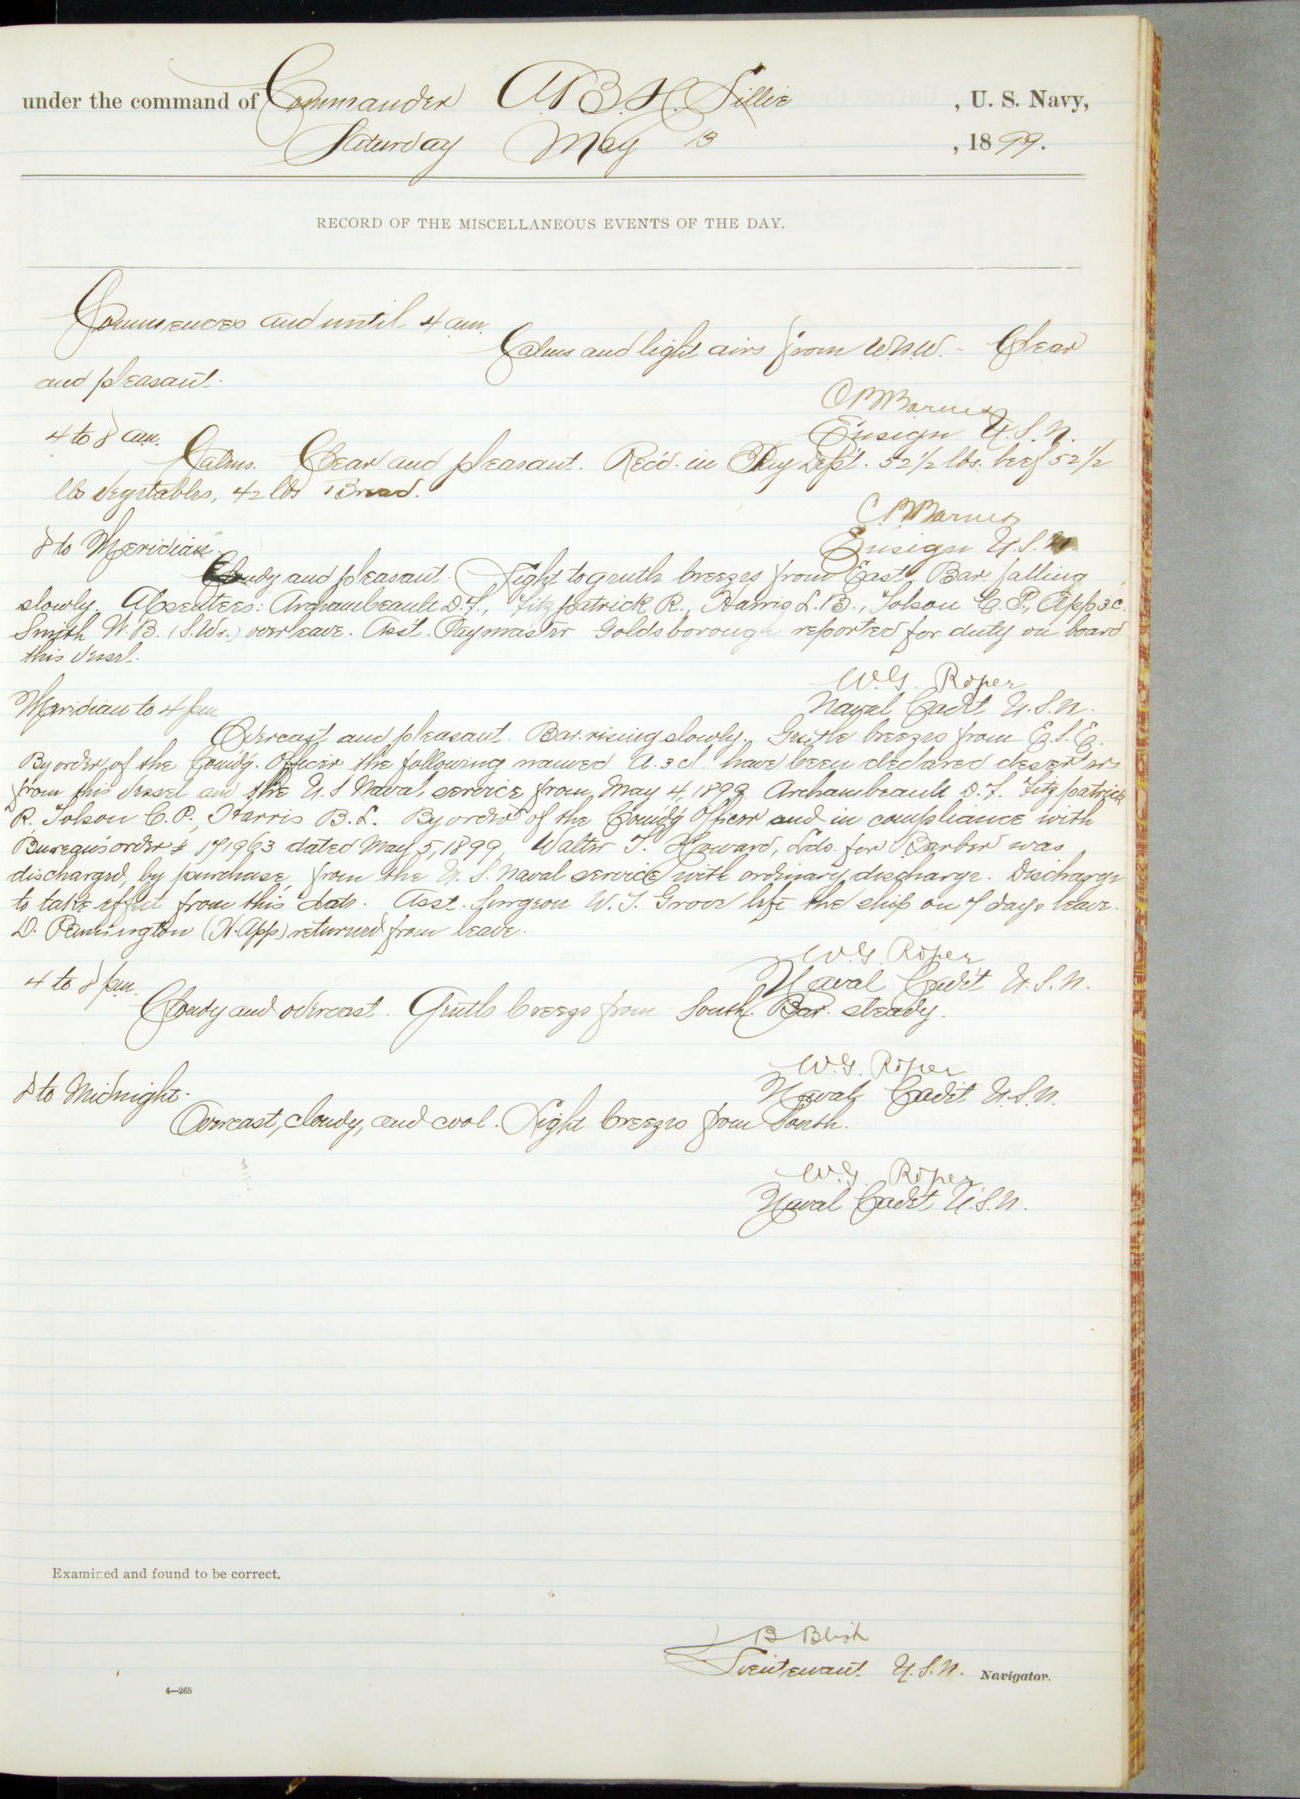 under the command of Commander A. B. H. Lillie , U. S. Navy,
Saturday May 13 , 1899.
RECORD OF THE MISCELLANEOUS EVENTS OF THE DAY.
Commences and until 4 am.
Calms and light airs from WNW. - Clear
and pleasant.
C B Barnes
Ensign U.S.N.
4 to 8 am.
Calms. Clear and pleasant. Rec'd. in Pay Dept. 52 1/2 lbs. beef 52 1/2
lbs vegetables, 42 lbs Bread.
C B Barnes
Ensign U.S.N.
8 to Meridian.
Cloudy and pleasant. Light to gentle breezes from East. Bar. falling
slowly. Absentees: Archambeault D.F., Fitzpatrick R., Harris L.B., Tolson C.P., App 3c.
Smith W.B. (S.Wr.) overleave. Ass't. Paymaster Goldsborough reported for duty on board
this vessel.
W.G. Roper
Naval Cadet U.S.N.
Meridian to 4 pm
Overcast and pleasant. Bar. rising slowly. Gentle breezes from E.S.E.
By order of the Com'dg. Officer the following named A. 3 cl. have been declared deserters
from this vessel and the U.S Naval service from May 4, 1899 Archambeault D.F. Fitzpatrick
R. Tolson C.P., Harris B.L. By order of the Com'dg Officer and in compliance with
order 191963 dated May 5, 1899, Walter T. Howard, Lds. for Barber was
discharged, by purchase from the U.S. Naval service with ordinary discharge. Discharge
to take effect from this date. Asst. Surgeon W.T. Grove left the ship on 7 days leave.
D. Pennington (H. App) returned from leave.
W.G. Roper
Naval Cadet U.S.N.
4 to 8 pm.
Cloudy and overcast. Gentle breeze from South. Bar. steady.
W.G. Roper
Naval Cadet U.S.N.
8 to Midnight.
Overcast, cloudy, and cool. Light breezes from South.
W.G. Roper
Naval Cadet U.S.N.
Examined and found to be correct.
B Blish
Lieutenant U.S.N. Navigator.
4—265